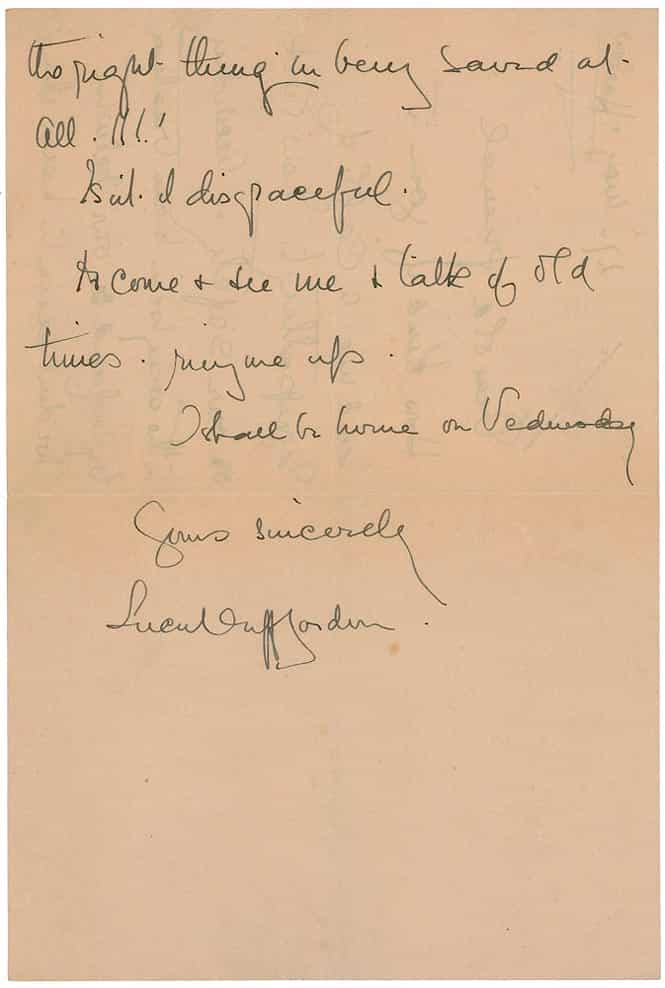 the right thing in being saved at
all. !!!!
Isn't it disgraceful.
Do come & see me & talk of old
times. ring me up.
I shall be home on Wednesday
Yours sincerely
Lucile Duff Gordon.